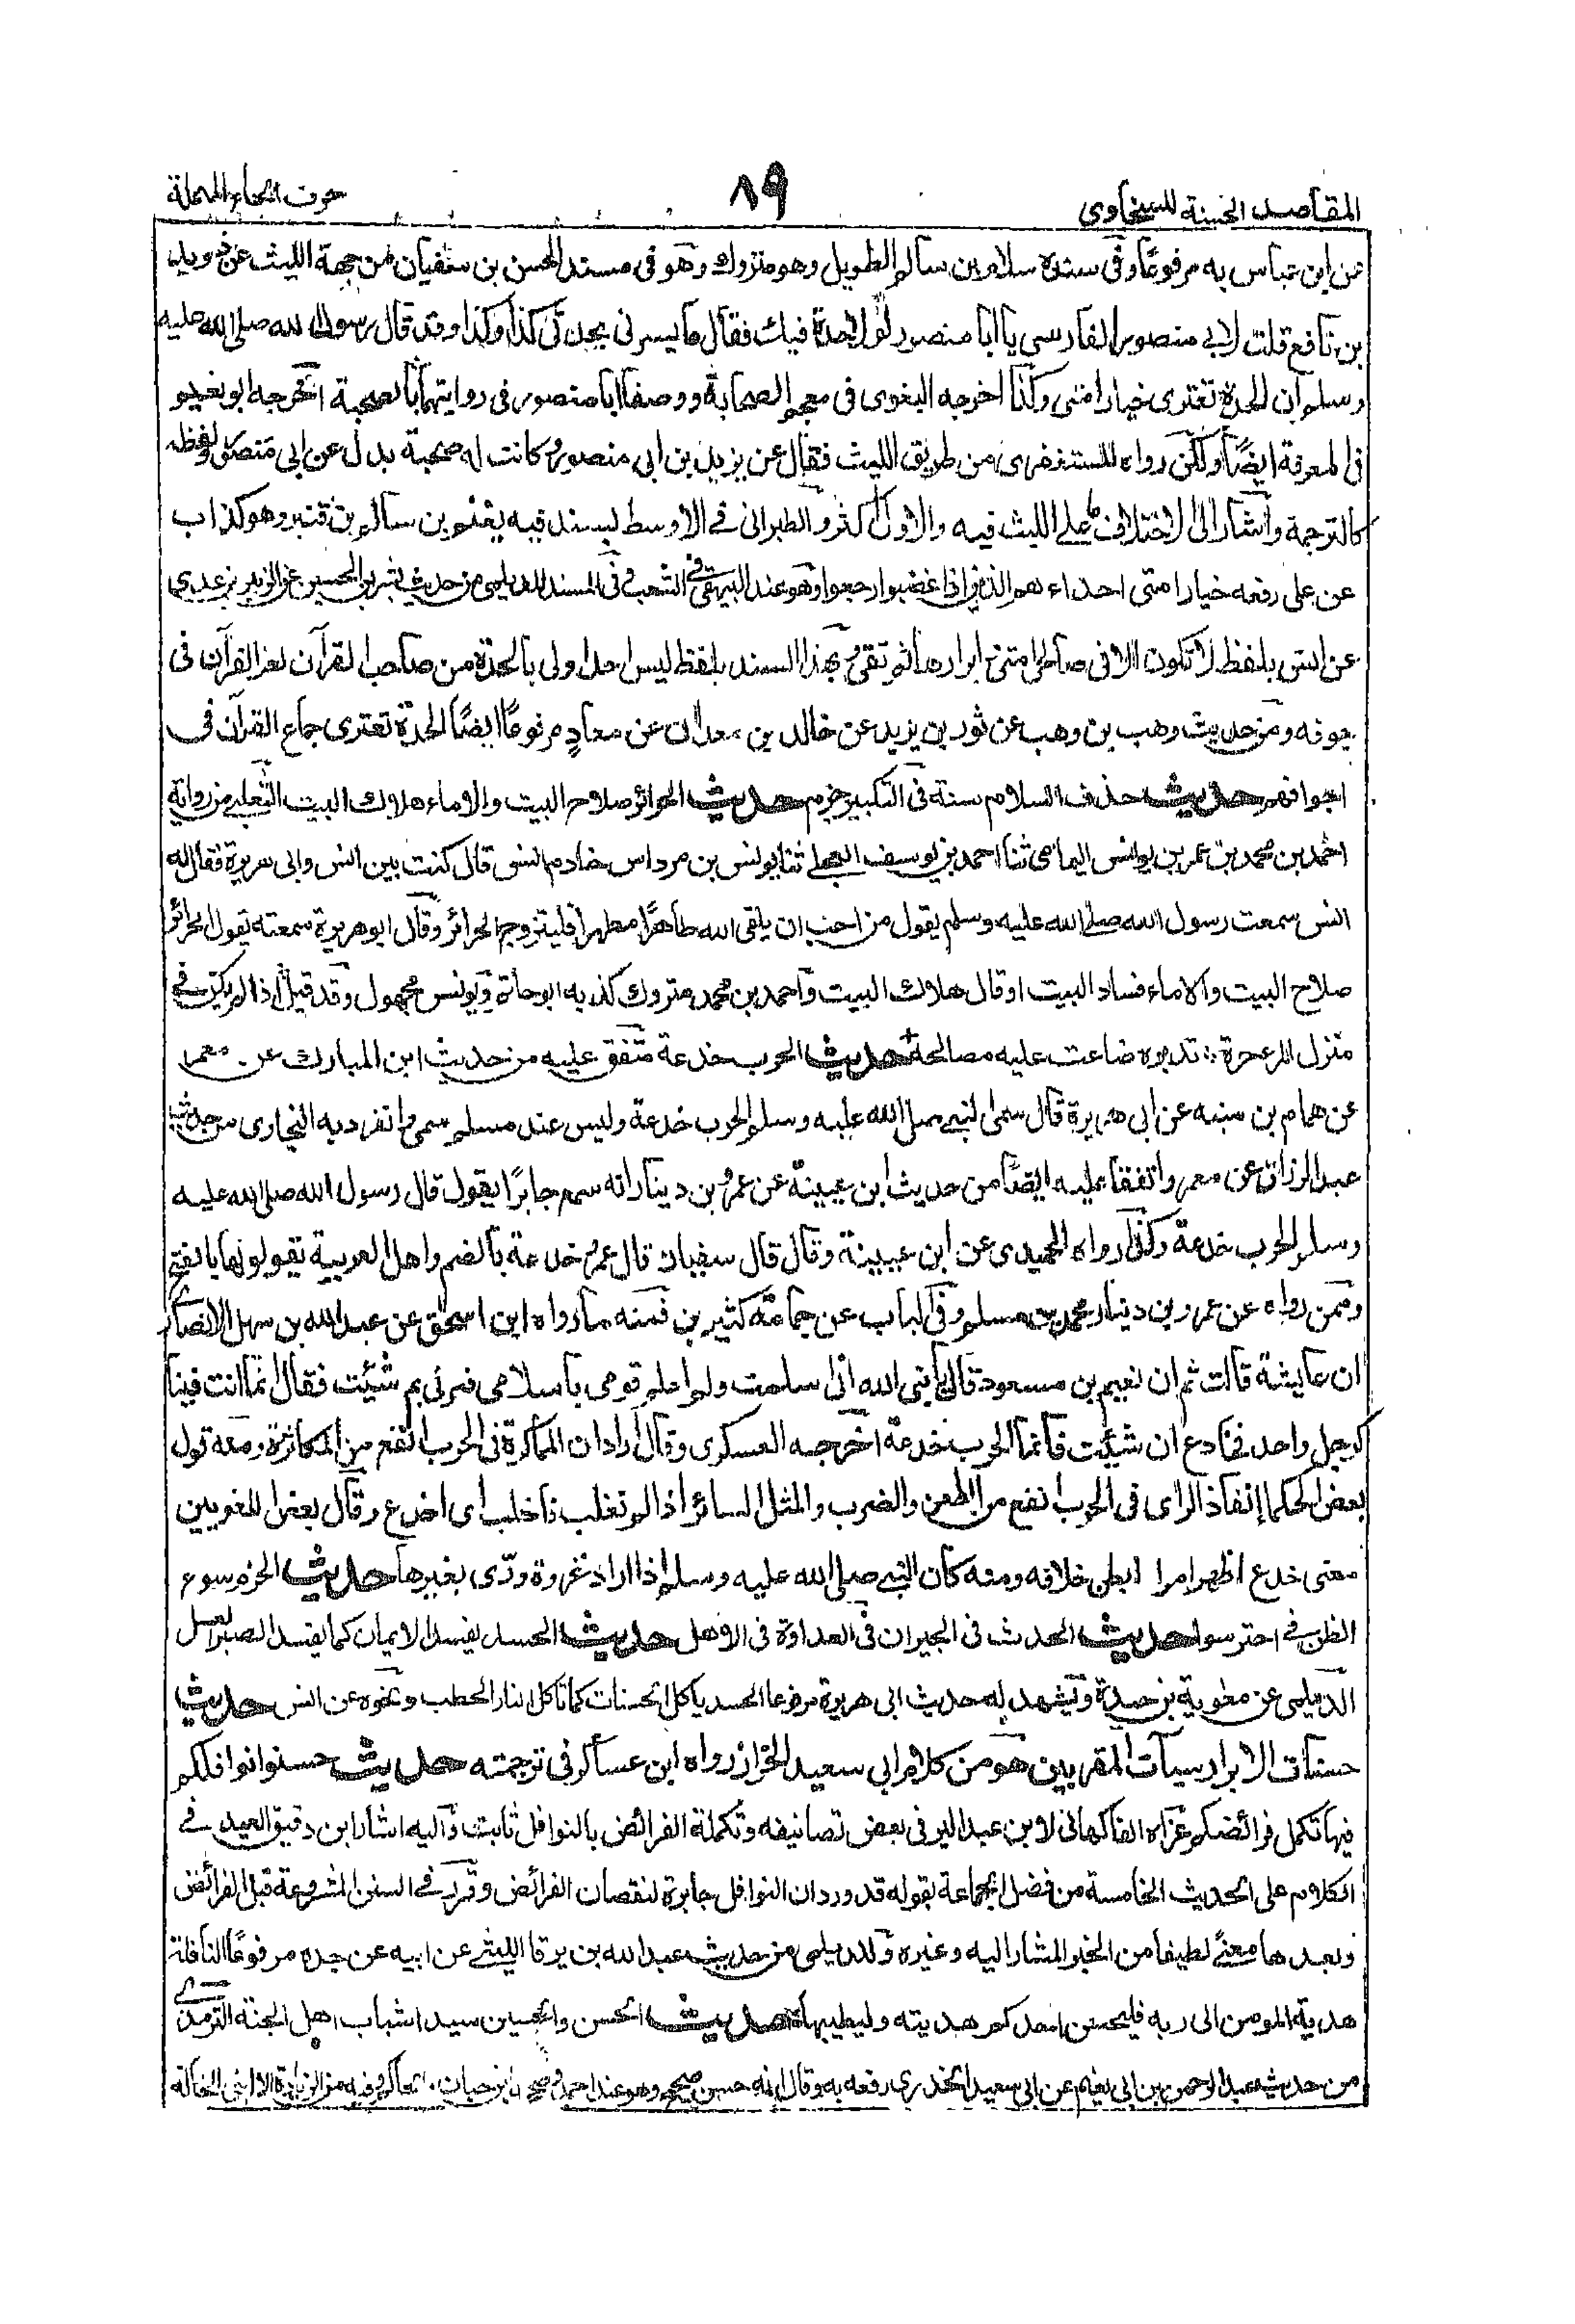 المقاصد الحسنة للسخاوى ٨٩ حرف الحاء المهملة
عن ابن عباس به مرفوعًا وفى سنده سلام بن سالم الطويل وهو متروك وهو فى مسند الحسن بن سفيان من جهة الليث عن دويد
بن نافع قلت لابي منصور الفارسى يا ابا منصور لولا حدة فيك فقال ما يسرنى بحدتى كذا وكذا وقد قال رسول الله صلى الله عليه
وسلم ان الحدة تعترى خيار امتى وكذا اخرجه البغوى فى معجم الصحابة ووصفا ابا منصور فى روايتهما بالصحبة اخرجه ابو نعيم
فى المعرفة ايضًا ولكن رواه المستغفرى من طريق الليث فقال عن يزيد بن ابى منصور وكانت له صحبة بدل عن ابى منصور ولفظه
كالترجمة واشار الى الاختلاف على الليث فيه والاول اكثر والطبرانى فى الاوسط بسند فيه يغنم بن سالم بن قنبر وهو كذاب
عن على رفعه خيار امتى احداءهم الذين اذا غضبوا رجعوا وهو عند البيهقى فى الشعب وفى المسند للديلمى من حديث بشر بن الحسين عن الزبير بن عدى
عن انس بلفظ لا تكون الا فى صالحى امتى وابرارها ثم تقى وبهذا السند بلفظ ليس احد اولى بالحدة من صاحب القرآن لعز القرآن فى
جوفه ومن حديث وهب بن وهب عن ثور بن يزيد عن خالد بن معدان عن معاذ مرفوعًا ايضًا الحدة تعترى جماع القرآن فى
اجوافهم حديث حذف السلام سنة فى التكبير جزم حديث الحرائر صلاح البيت والاماء هلاك البيت الثعلبى من رواية
احمد بن محمد بن عمر بن يونس اليمامى ثنا احمد بن يوسف العجلى ثنا يونس بن مرداس خادم انس قال كنت بين انس وابى هريرة فقال له
انس سمعت رسول الله صلى الله عليه وسلم يقول من احب ان يلقى الله طاهرًا مطهرا فليتزوج الحرائر وقال ابو هريرة سمعته يقول الحرائر
صلاح البيت والاماء فساد البيت او قال هلاك البيت واحمد بن محمد متروك كذبه ابو حاتم ويونس مجهول وقد قيل اذا لم يكن فى
منزل المرء حرة ∴ تدبره ضاعت عليه مصالحه حديث الحرب خدعة متفق عليه من حديث ابن المبارك عن معمر
عن همام بن منبه عن ابى هريرة قال سمى النبى صلى الله عليه وسلم الحرب خدعة وليس عند مسلم سمى وانفرد به البخارى من حديث
عبد الرزاق عن معمر واتفقا عليه ايضًا من حديث ابن عيينة عن عمرو بن دينار انه سمع جابرًا يقول قال رسول الله صلى الله عليه
وسلم الحرب خدعة وكذا رواه الحميدى عن ابن عيينة وقال قال سفيان قال عمرو خدعة بالضم واهل العربية يقولونها بالفتح
وممن رواه عن عمرو بن دينار محمد بن مسلم وفى الباب عن جماعة كثيرين فمنه ما رواه ابن اسحٰق عن عبد الله بن سهل الانصارى
ان عايشة قالت ثم ان نعيم بن مسعود قال يا نبى الله انى اسلمت ولم اعلم قومى باسلامى فمرنى بم شئت فقال انما انت فينا
كرجل واحد فخادع ان شئت فانما الحرب خدعة اخرجه العسكرى وقال اراد ان المماكرة فى الحرب انفع من المكاثرة ومنه قول
بعض الحكماء انفاذ الراى فى الحرب انفع من الطعن والضرب والمثل السائر اذا لم تغلب فاخلب اى اخدع وقال بعض اللغويين
معنى خدع اظهر امرا ابطن خلافه ومنه كان النبى صلى الله عليه وسلم اذا اراد غزوة ورّى بغيرها حديث الحزم سوء
الظن فى احترسوا حديث الحدث فى الجيران فى العداوة فى الاهل حديث الحسد يفسد الايمان كما يفسد الصبر العسل
الديلمى عن معٰوية بن حيدة ويشهد له حديث ابى هريرة مرفوعا الحسد ياكل الحسنات كما تاكل النار الحطب ونحوه عن انس حديث
حسنات الابرار سيآت المقربين هو من كلام ابى سعيد الخراز رواه ابن عساكر فى ترجمته حديث حسنوا نوافلكم
فبها تكمل فرائضكم عزاه الفاكهانى لابن عبد البر فى بعض تصانيفه وتكملة الفرائض بالنوافل ثابت واليه اشار ابن دقيق العيد فى
الكلام على الحديث الخامسة من فضل الجماعة بقوله قد ورد ان النوافل جابرة لنقصان الفرائض وقرر فى السنن المشروعة قبل الفرائض
وبعدها معنى لطيفا من الخبر المشار اليه وغيره وللديلمى من حديث عبد الله بن يرفا الليثى عن ابيه عن جده مرفوعًا النافلة
هدية المومن الى ربه فليحسن احدكم هديته وليطيبها حديث الحسن والحسين سيدا شباب اهل الجنة الترمذى
من حديث عبد الرحمن بن ابى نعيم عن ابى سعيد الخدرى رفعه به وقال انه حسن صحيح وهو عند احمد وصححه ابن حبان والحاكم وفيه من الزيادة الا ابنى الخالة